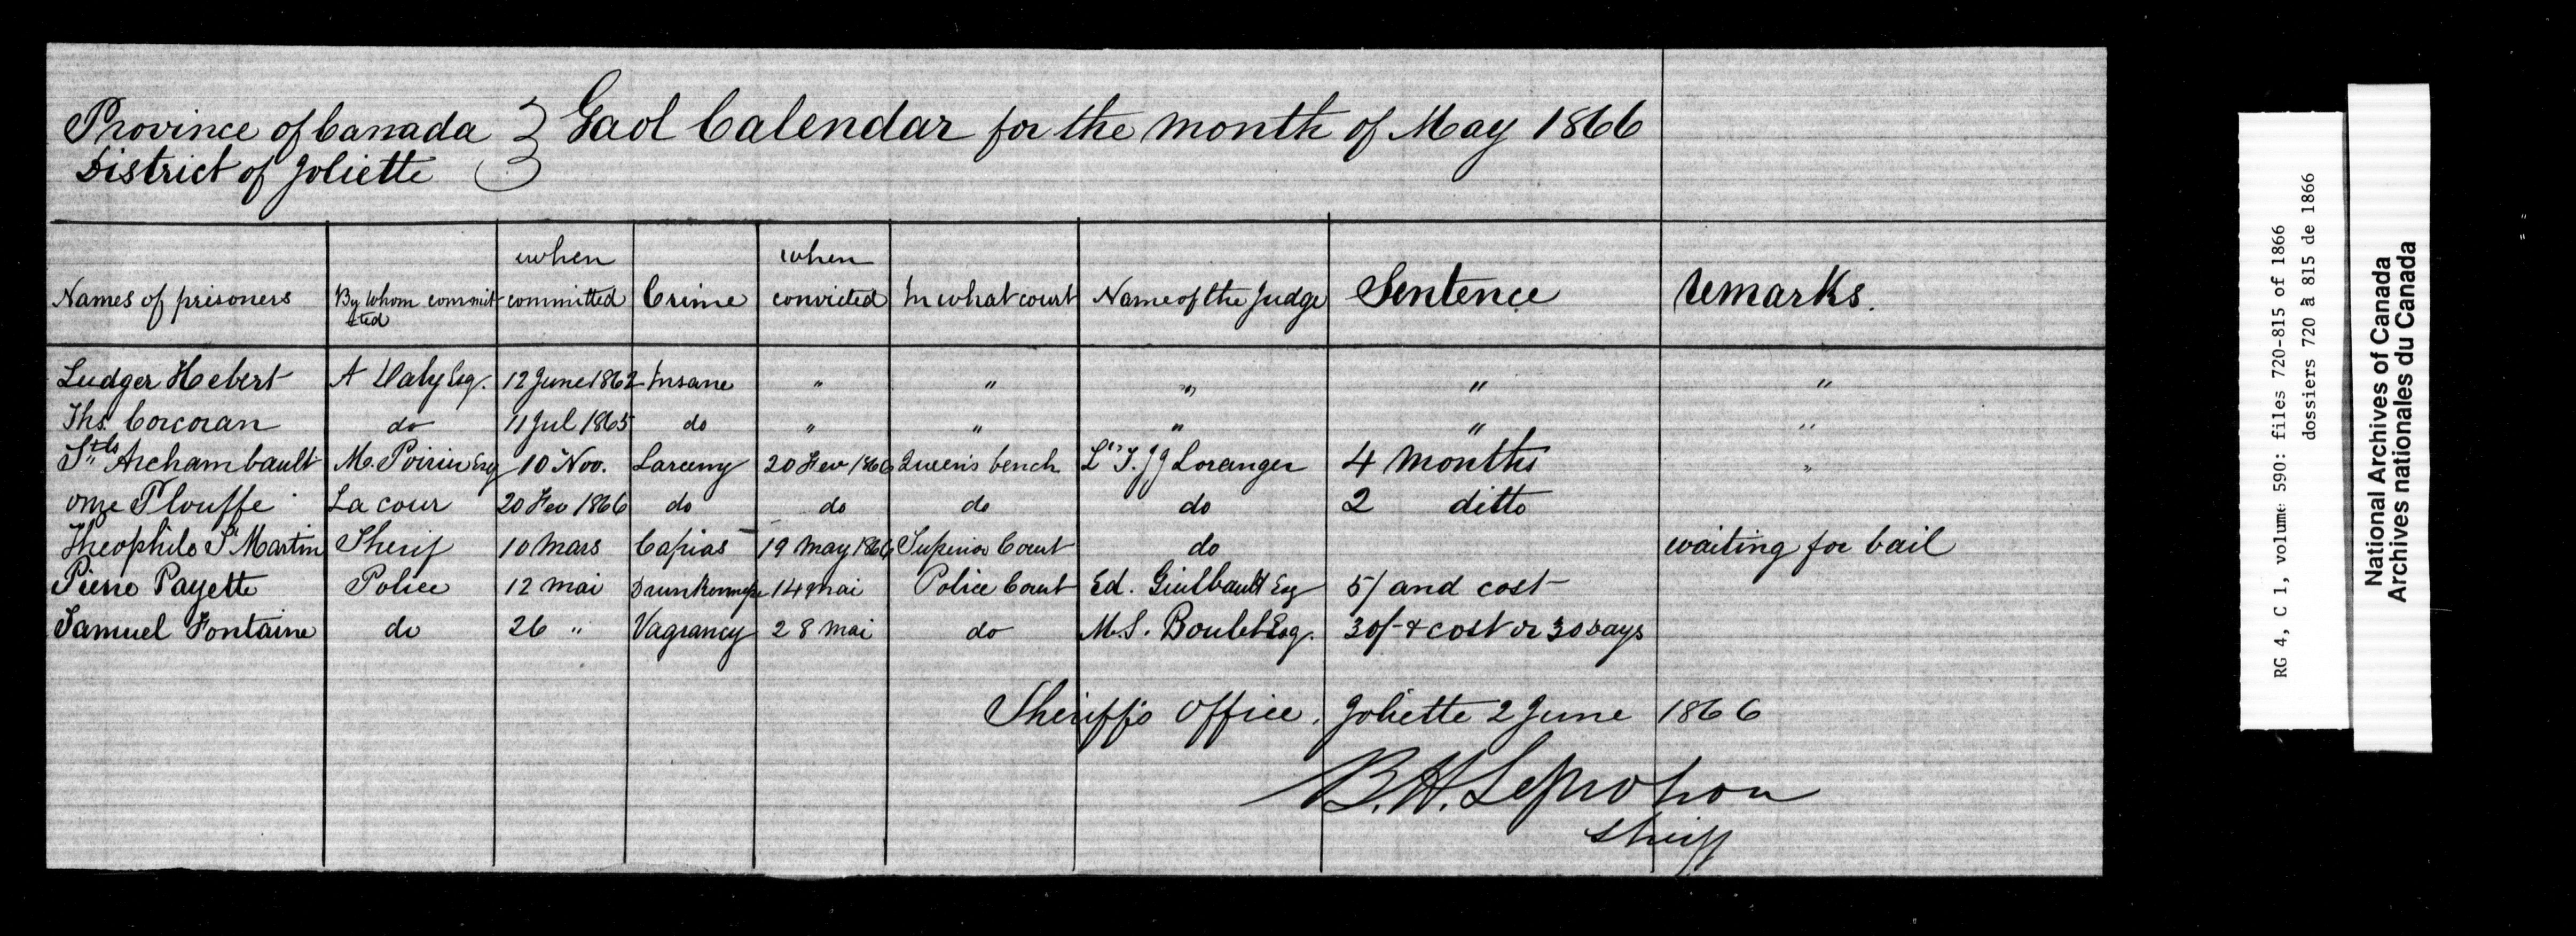 Province of Canada } Gaol Calendar for the month of May 1866
District of Joliette
Names of prisoners | By whom committed | when committed | Crime | when convicted | In what court | Name of the Judge | Sentence | remarks.
Ludger Hebert | A Daly Esq. | 12 June 1862 | Insane | " | " | " | " | "
Ths. Corcoran | do | 11 Jul 1865 | do | " | " | " | " | "
Archambault | M. Poirier Esq | 10 Nov. | Larceny | 20 Fev 1866 | Queen's bench | J J Loranger | 4 months | "
onze Plouffe | La cour | 20 Fev 1866 | do | do | do | do | 2 ditto
Theophile St Martin | Sherif | 10 Mars | Capias | 19 May 1866 | Superior Court | do | waiting for bail
Pierre Payette | Police | 12 mai | Drunkenness | 14 mai | Police Court | Ed. Guilbault Esq | 5/ and cost
Samuel Fontaine | do | 26 " | Vagrancy | 28 mai | do | M.S. Boulet Esq. | 30/- & cost or 30 Days
Sheriff's office. Joliette 2 June 1866
B.H. Leprohon
Sheriff
RG 4, C 1, volume 590: files 720-815 of 1866
dossiers 720 à 815 de 1866
National Archives of Canada
Archives nationales du Canada